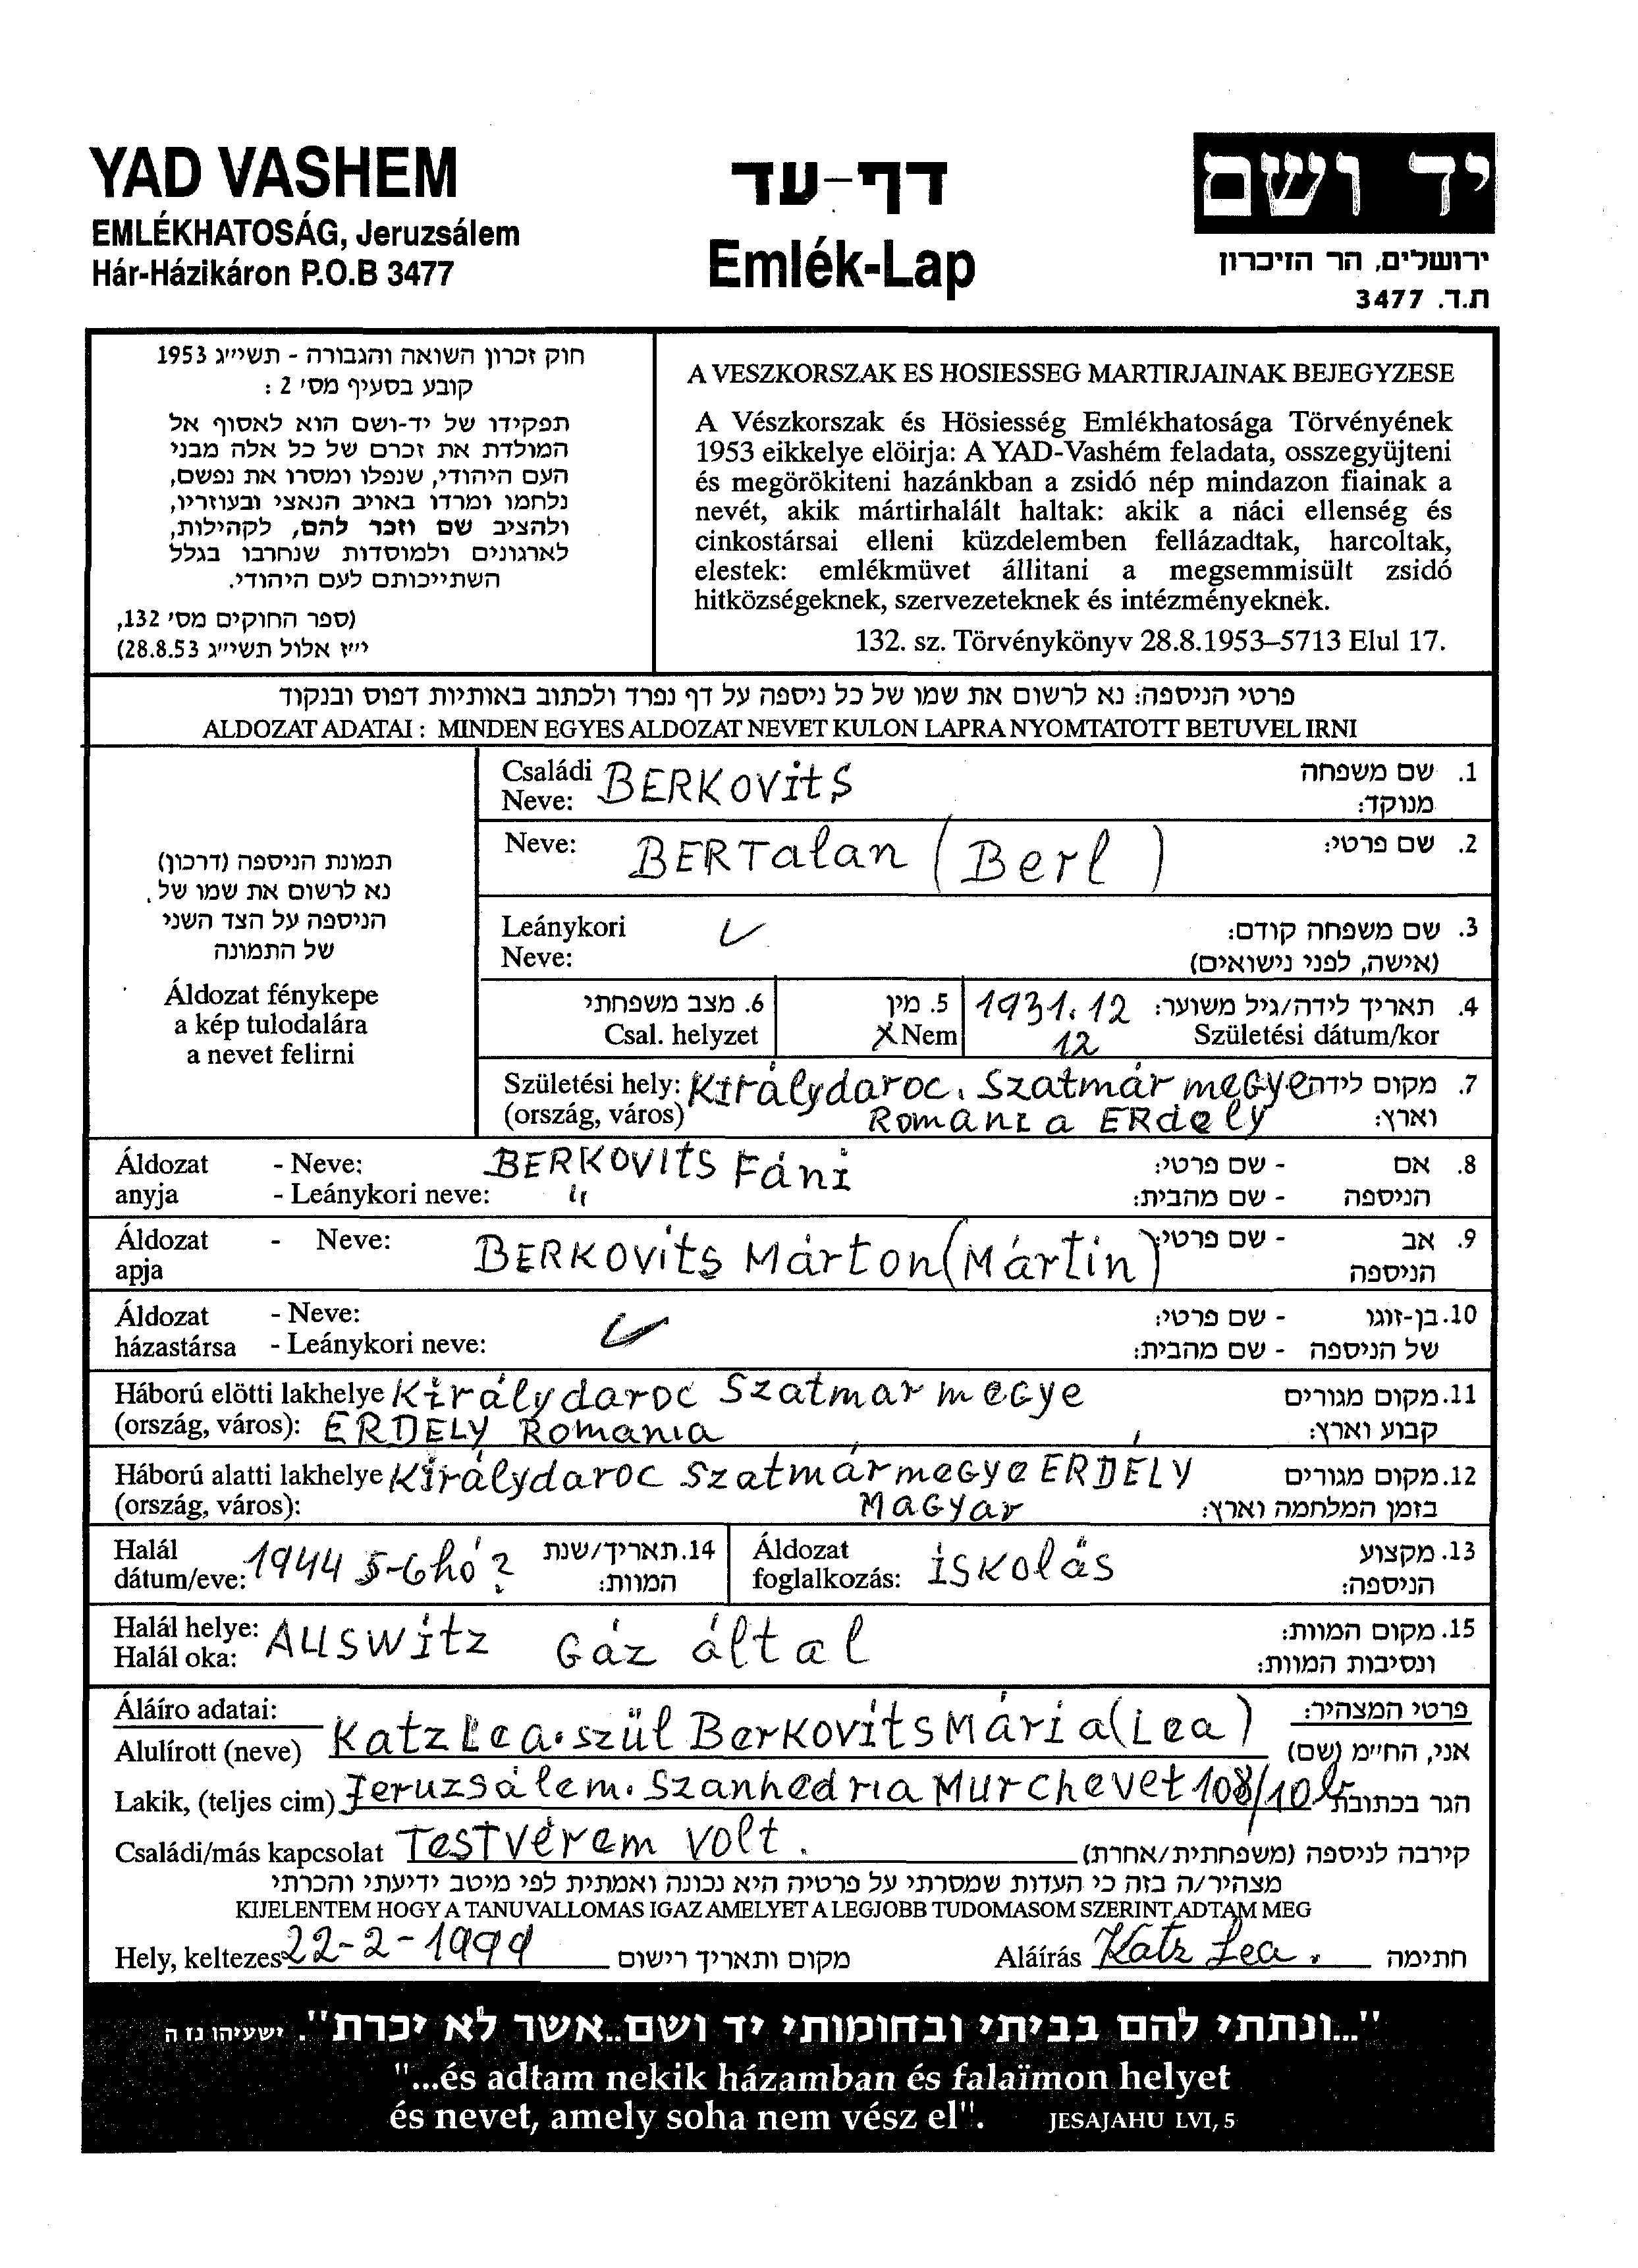 YAD VASHEM
EMLÉKHATOSÁG, Jeruzsálem
Hár-Házikáron P.O.B 3477
דף-עד
Emlék-Lap
יד ושם
ירושלים, הר הזיכרון
ת.ד. 3477
חוק זכרון השואה והגבורה - תשי״ג 1953
קובע בסעיף מס׳ 2 :
תפקידו של יד-ושם הוא לאסוף אל
המולדת את זכרם של כל אלה מבני
העם היהודי, שנפלו ומסרו את נפשם,
נלחמו ומרדו באויב הנאצי ובעוזריו,
ולהציב שם וזכר להם, לקהילות,
לארגונים ולמוסדות שנחרבו בגלל
השתייכותם לעם היהודי.
(ספר החוקים מס׳ 132,
י״ז אלול תשי״ג 28.8.53)
A VESZKORSZAK ES HOSIESSEG MARTIRJAINAK BEJEGYZESE
A Vészkorszak és Hösiesség Emlékhatosága Törvényének
1953 eikkelye elöirja: A YAD-Vashém feladata, osszegyüjteni
és megörökiteni hazánkban a zsidó nép mindazon fiainak a
nevét, akik mártirhalált haltak: akik a náci ellenség és
cinkostársai elleni küzdelemben fellázadtak, harcoltak,
elestek: emlékmüvet állitani a megsemmisült zsidó
hitközségeknek, szervezeteknek és intézményeknek.
132. sz. Törvénykönyv 28.8.1953–5713 Elul 17.
פרטי הניספה: נא לרשום את שמו של כל ניספה על דף נפרד ולכתוב באותיות דפוס ובנקוד
ALDOZAT ADATAI : MINDEN EGYES ALDOZAT NEVET KULON LAPRA NYOMTATOTT BETUVEL IRNI
תמונת הניספה (דרכון)
נא לרשום את שמו של
הניספה על הצד השני
של התמונה
Áldozat fénykepe
a kép tulodalára
a nevet felirni
Családi BERKOVItS 1. שם משפחה
Neve: מנוקד:
Neve: BERTalan (Berl) 2. שם פרטי:
Leánykori 3. שם משפחה קודם:
Neve: (אישה, לפני נישואים)
6. מצב משפחתי 5. מין 1931. 12 4. תאריך לידה/גיל משוער:
Csal. helyzet X Nem 12 Születési dátum/kor
Születési hely: Királydaroc. Szatmár meGye 7. מקום לידה
(ország, város) Romania ERdely וארץ:
Áldozat - Neve: BERKOVITS Fáni - שם פרטי: 8. אם
anyja - Leánykori neve: 〃 - שם מהבית: הניספה
Áldozat - Neve: BERKOVits Márton (Mártin) - שם פרטי: 9. אב
apja הניספה
Áldozat - Neve: - שם פרטי: 10. בן-זוגו
házastársa - Leánykori neve: - שם מהבית: של הניספה
Háború elötti lakhelye Királydaroc Szatmar meGye 11. מקום מגורים
(ország, város): ERDELY Romania קבוע וארץ:
Háború alatti lakhelye Királydaroc Szatmármegye ERDÉLY 12. מקום מגורים
(ország, város): MaGyar בזמן המלחמה וארץ:
Halál 1944 5-6 hó? 14. תאריך/שנת Áldozat iskolás 13. מקצוע
dátum/eve: המוות: foglalkozás: הניספה:
Halál helye: AUSWitz Gáz által 15. מקום המוות:
Halál oka: ונסיבות המוות:
Aláíro adatai: פרטי המצהיר:
Alulírott (neve) Katz Lea. szül Berkovits Mária (Lea) אני, הח״מ (שם)
Lakik, (teljes cim) Jeruzsálem. Szanhedria Murchevet 108/10 הגר בכתובת
Családi/más kapcsolat TestVérem volt. קירבה לניספה (משפחתית/אחרת)
מצהיר/ה בזה כי העדות שמסרתי על פרטיה היא נכונה ואמתית לפי מיטב ידיעתי והכרתי
KIJELENTEM HOGY A TANUVALLOMAS IGAZ AMELYET A LEGJOBB TUDOMASOM SZERINT ADTAM MEG
Hely, keltezes 22-2-1999 מקום ותאריך רישום Aláírás Katz Lea. חתימה
"...ונתתי להם בביתי ובחומותי יד ושם..אשר לא יכרת". ישעיהו נו ה
"...és adtam nekik házamban és falaïmon helyet
és nevet, amely soha nem vész el". JESAJAHU LVI, 5